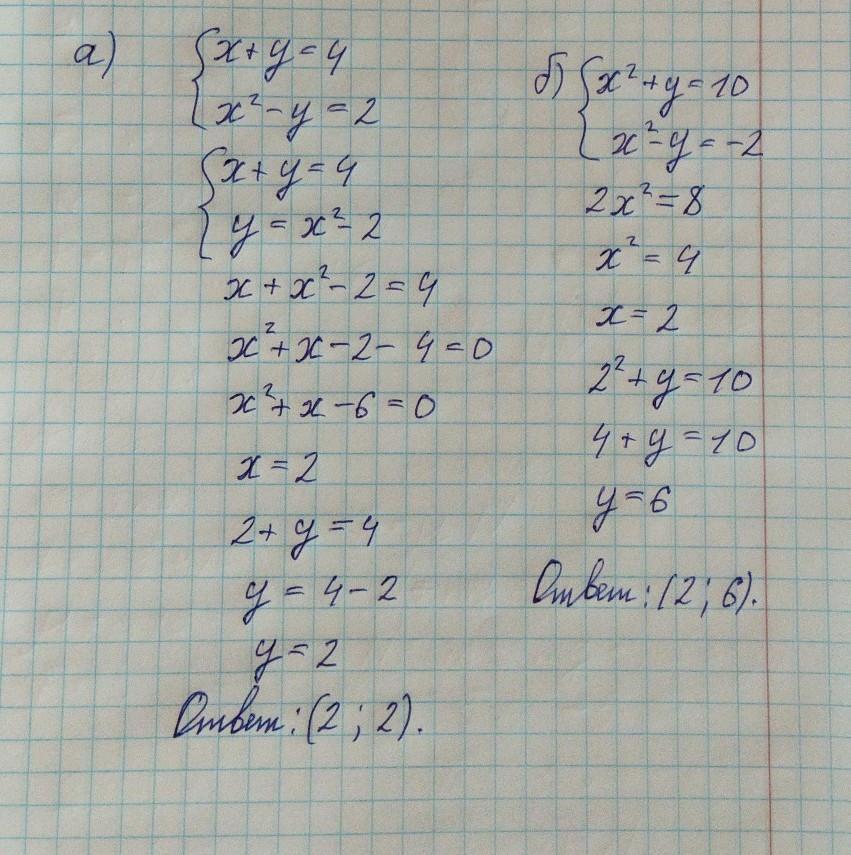 а)
x + y = 4
x² - y = 2
x + y = 4
y = x² - 2
x + x² - 2 = 4
x² + x - 2 - 4 = 0
x² + x - 6 = 0
x = 2
2 + y = 4
y = 4 - 2
y = 2
Ответ: (2 ; 2).
б)
x² + y = 10
x² - y = -2
2x² = 8
x² = 4
x = 2
2² + y = 10
4 + y = 10
y = 6
Ответ: (2 ; 6).